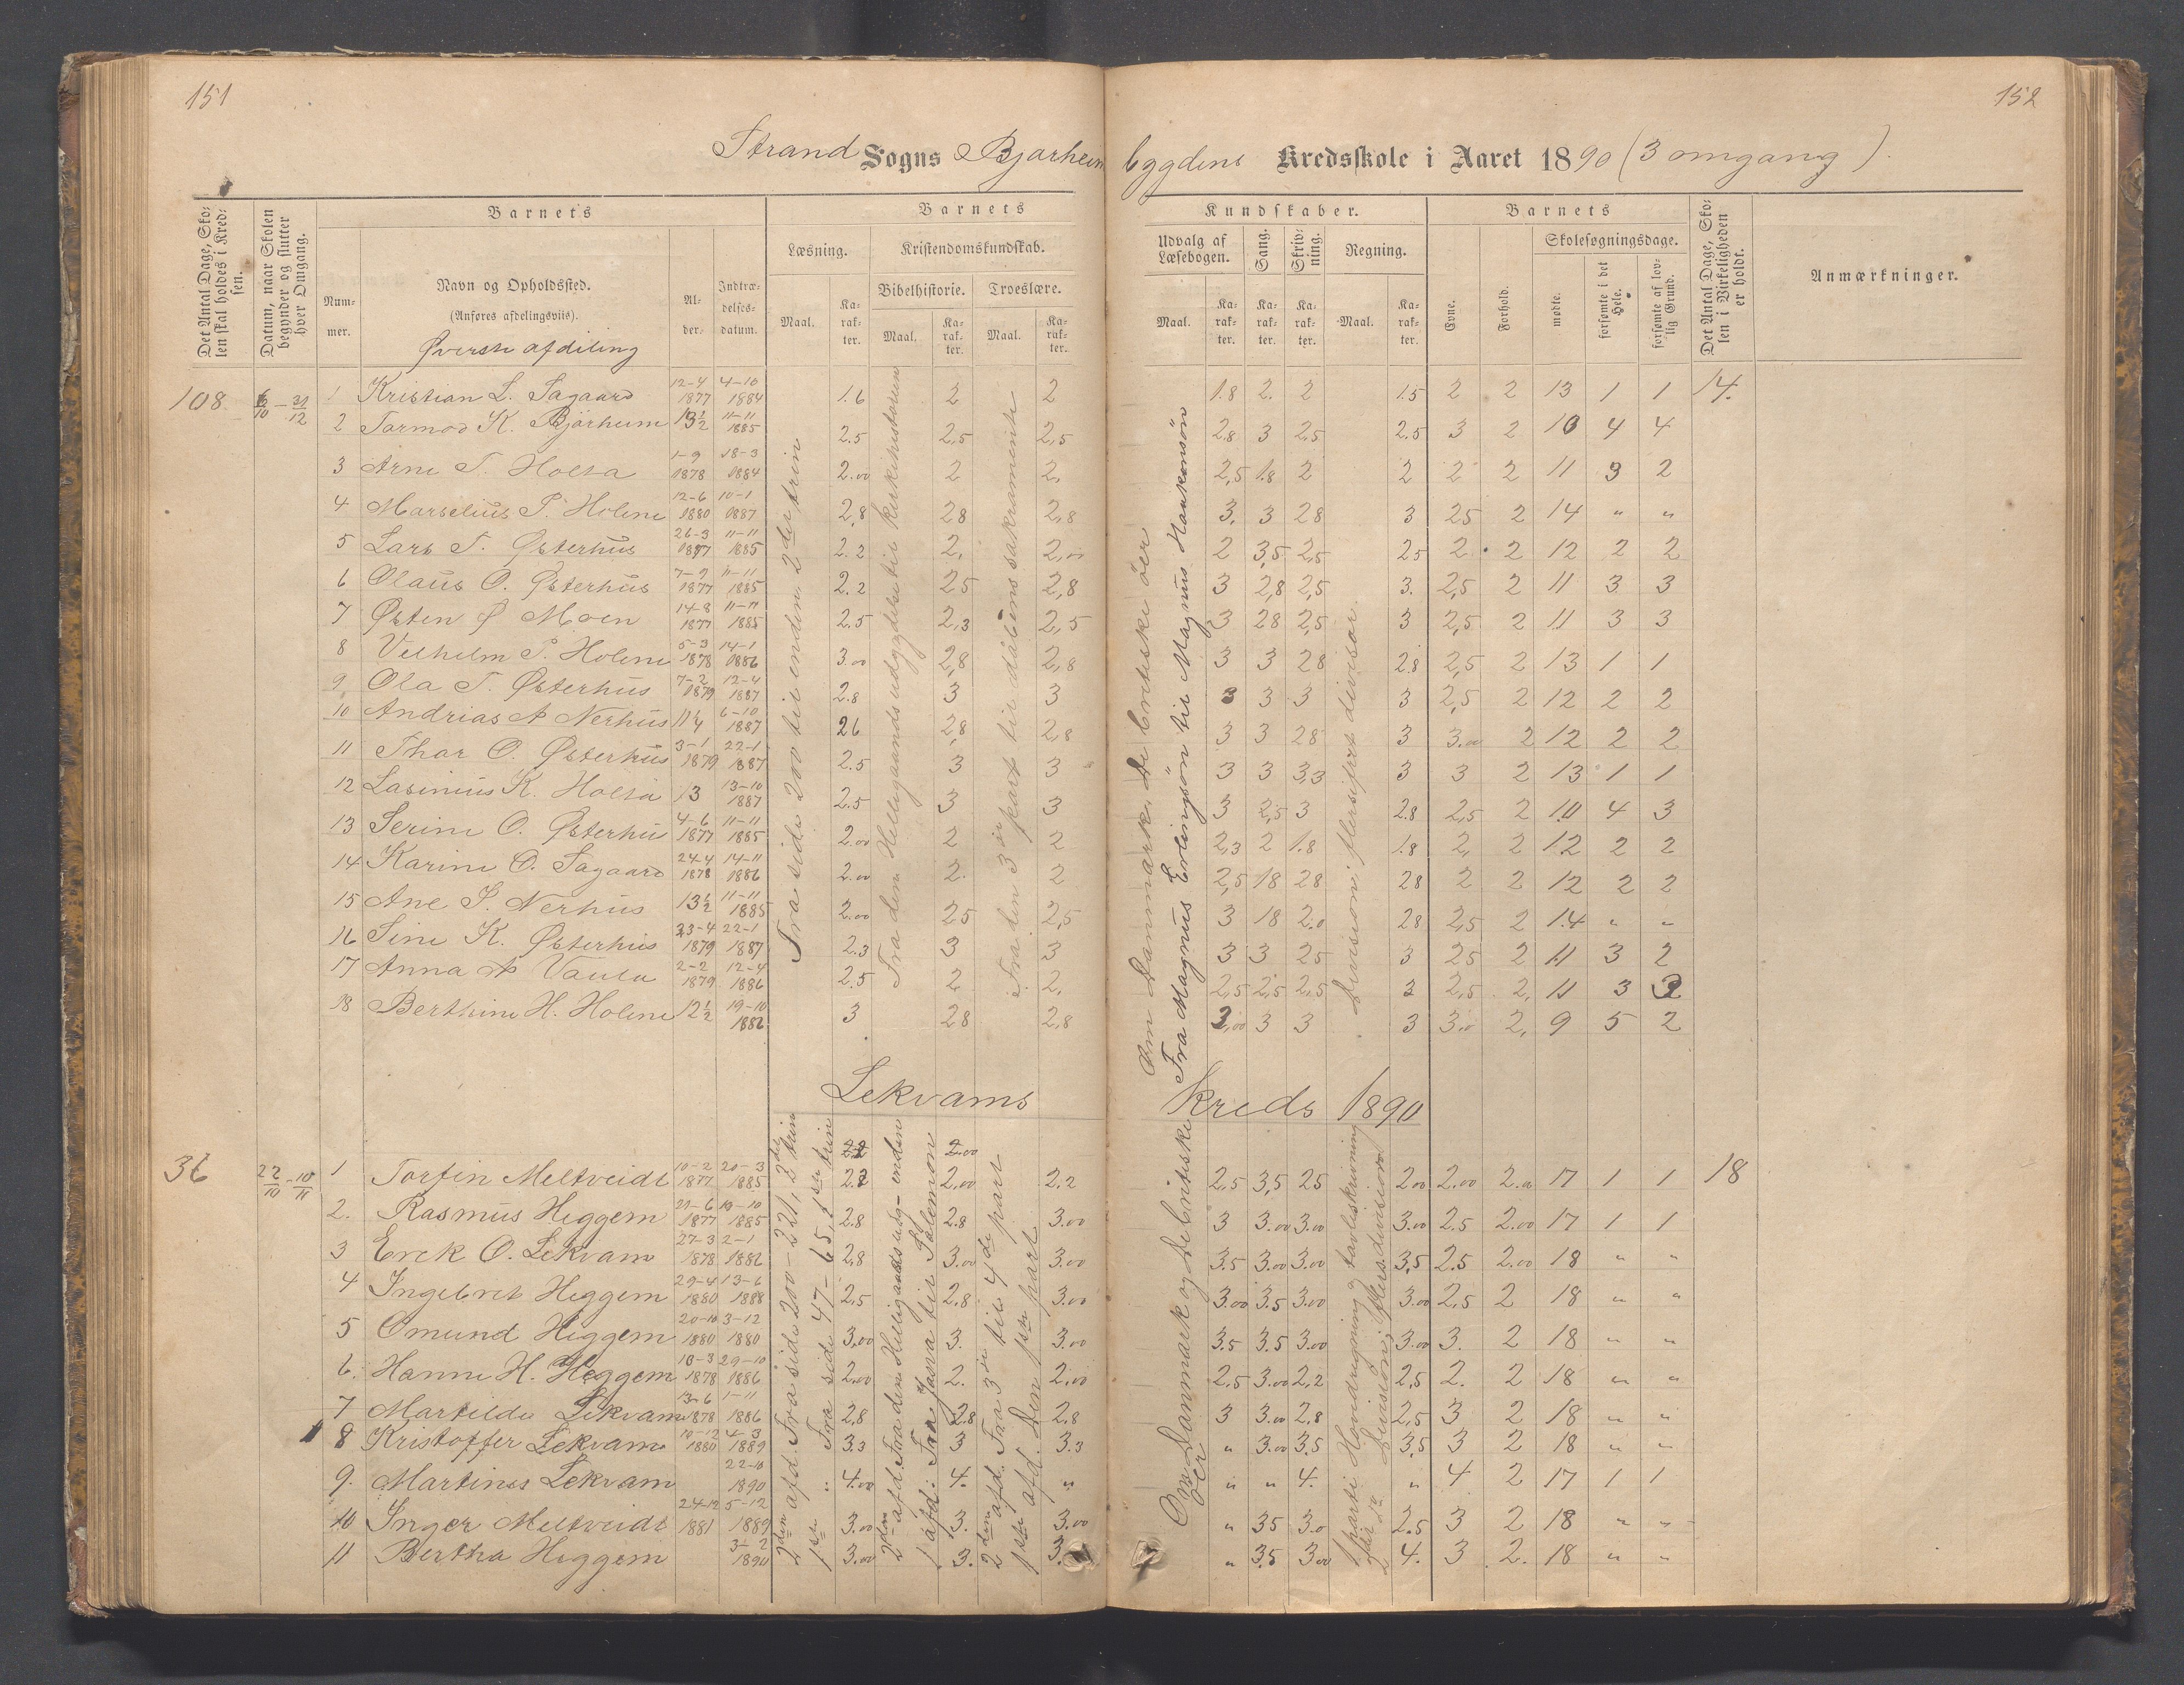 151
152
Strand Sogns Bjørheim bygdens Kredsskole i Aaret 1890 (3 omgang).
Det Antal Dage, Skolen skal holdes i Kredsen.
Datum, naar Skolen begynder og slutter hver Omgang.
Barnets
Nummer.
Navn og Opholdssted.
(Anføres afdelingsviis).
Øverste afdeling
Alder.
Indtrædelsesdatum.
Barnets
Kundskaber.
Læsning.
Maal.
Karakter.
Kristendomskundskab.
Bibelhistorie.
Maal.
Karakter.
Troeslære.
Maal.
Karakter.
Udvalg af Læsebogen.
Maal.
Karakter.
Sang.
Karakter.
Skrivning.
Karakter.
Regning.
Maal.
Karakter.
Barnets
Evne.
Forhold.
Skolesøgningsdage.
mødte.
forsømte i det Hele.
forsømte af lovlig Grund.
Det Antal Dage, Skolen i Virkeligheden er holdt.
Anmærkninger.
108
1 Kristian L. Tagaard 12-4 1877 4-10 1884 1.6 2 2 1.8 2. 2 1.5 2 2 13 1 1 14.
2 Tormod K. Bjørheim 13½ 11-11 1885 2.5 2,5 2,5 2.8 3 2,5 2.5 3 2 10 4 4
3 Arne T. Holta 1-9 1878 18-3 1884 2.00 2 2, 2,5 1.8 2 2 2 2 11 3 2
4 Marselius P. Holene 12-6 1880 10-1 1887 2,8 28 2,8 3, 3 28 3 25 2 14 " "
5 Lars T. Østerhus 26-3 1877 11-11 1885 2.2 2, 2,00 2 3,5 2,5 25 2 2 12 2 2
6 Olaus O. Østerhus 7-9 1877 11-11 1885 2.2 25 2,8 3 2,8 2,5 3. 2,5 2 11 3 3
7 Østen Ø Moen 14-8 1877 11-11 1885 2.5 2,3 2,5 3 28 2,5 3 2,5 2 11 3 3
8 Velhelm P. Holene 5-3 1878 14-1 1886 3.00 2,8 2,8 3 3 28 2.8 2,5 2 13 1 1
9 Ola T. Østerhus 7-2 1879 12-4 1887 2.8 3 3 3 3 3 3 2,5 2 12 2 2
10 Andrias A Nerhus 11¼ 6-10 1887 26 2,8 2,8 3 3 28 3 3.00 2 12 2 2
11 Thor O. Østerhus 3-1 1879 22-1 1887 2.5 3 3 3 3 3,3 3 3 2 13 1 1
12 Lasinius K. Holta 13 13-10 1887 2.5 3 3 3 2,5 3 2.8 2,5 2 10 4 3
13 Serine O. Østerhus 4-6 1877 11-11 1885 2.00 2 2 2,3 2 1.8 1.8 2, 2 12 2 2
14 Karine O. Tagaard 24-4 1878 14-11 1886 2.00 2. 2 2,5 18 28 28 2 2 12 2 2
15 Ane S. Nerhus 13½ 11-11 1885 2.00 25 2,5 3 18 2.0 28 2,5 2 14 " "
16 Sine K. Østerhus 23-4 1879 22-1 1887 2.3 3 3 3 3 25 3 25 2 11 3 2
17 Anna A Vaula 2-2 1879 12-4 1886 2.5 2 2, 2,5 2,5 2,5 3 2,5 2, 11 3 2
18 Berthine H. Holene 12½ 19-10 1886 3 28 2,8 3,00 3 3 3 3.0 2, 9 5 2
Fra side 200 til enden 2det trin
Fra den Helligaands udgydelse til kirkehistorien
Fra den 3die part til daabens sakramente
Om Danmark, de britiske øer
Fra Magnus Erlingsøn til Magnus Haakonsøn
Division i flersifret divisor.
Lekvams kreds 1890
36
1 Torfin Meltveidt 10-2 1877 20-3 1885 2.2 2,00 2.2 2,5 3,5 25 2.00 2.00 2.00 17 1 1 18
2. Rasmus Heggem 29-6 1877 19-10 1885 2.8 2.8 3.00 3 3.00 3.00 3.00 2.5 2.00 17 1 1
3 Erek O. Lekvam 27-3 1878 2-1 1886 2,8 3.00 3.00 3.5 3.00 3.00 3,5 2.5 2.00 18 " "
4 Ingebret Heggem 29-4 1880 13-6 1888 2,5 2,8 3.00 3.00 3.5 3.00 3.00 2,5 2 18 " "
5 Omund Heggem 20-10 1880 3-12 1880 3,00 3. 3.00 3.5 3.5 3.00 3.00 3. 2 18 " "
6. Hanne H. Heggem 18-3 1878 29-10 1886 2,00 2. 2,00 2,5 3.00 2,2 2,5 2. 2 18 " "
7 Martilde Lekvam 13-6 1878 1-11 1886 2,8 2.8 2,8 3 3.00 2,8 2,5 3 2 18 " "
8 Kristoffer Lekvam 10-12 1880 4-3 1889 3.3 3 3.3 " 3.00 3.5 3,5 3 2 18 " "
9. Martines Lekvam 22-10 1890 4.00 4. " " " 4. " 4 2 17 1 1
10 Inger Meltveidt 24-12 1881 5-12 1889 3.00 3. 3.00 " 35 3.0 2.5 3 2 18 " "
11 Bertha Heggem 3-2 1890 3.00 3. 3. " 3.5 3.00 4. 3 2. 18 " "
2den afd. Fra side 200-221, 2det trin
1ste " Fra side 47-65, 1ste trin
2den afd. Fra den Helligaands udg- enden
1 afd. Fra Josva til Salemon
2den afd. Fra 3die til 4de part
1ste afd. Den 1ste part
Om Danmark og de britiske øer
1 parti Hovedregning og tavleskrivning
2 Division i flers. division